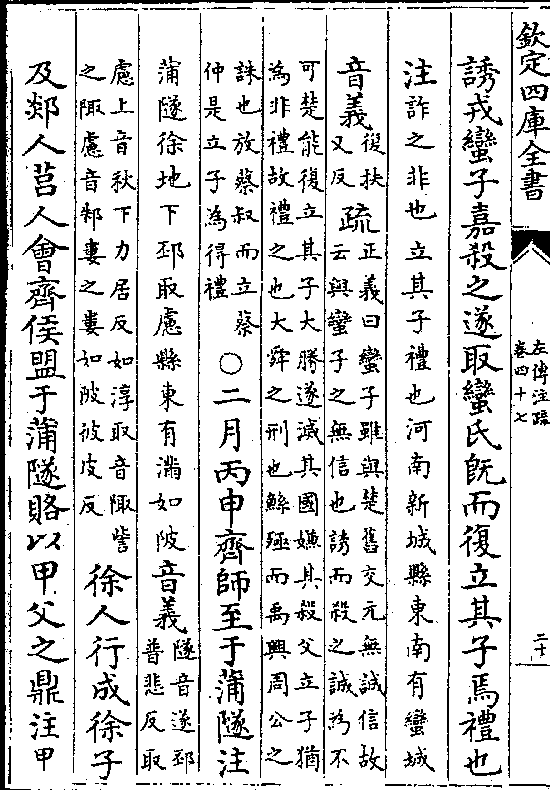 欽定四庫全書
左傳注疏
卷四十七
二十
誘戎蠻子嘉殺之遂取蠻氏既而復立其子焉禮也
注詐之非也立其子禮也河南新城縣東南有蠻城
音義復扶
又反
疏正義曰蠻子雖與楚舊交元無誠信故
云與蠻子之無信也誘而殺之誠為不
可楚能復立其子大勝遂滅其國嫌其殺父立子猶
為非禮故禮之也大舜之刑也鯀殛而禹興周公之
誅也放蔡叔而立蔡
仲是立子為得禮
○二月丙申齊師至于蒲隧注
蒲隧徐地下邳取慮縣東有蒲如陂音義隧音遂邳
普悲反取
慮上音秋下力居反如淳取音陬訾
之陬慮音邾婁之婁如陂彼皮反
徐人行成徐子
及郯人莒人會齊侯盟于蒲隧賂以甲父之鼎注甲